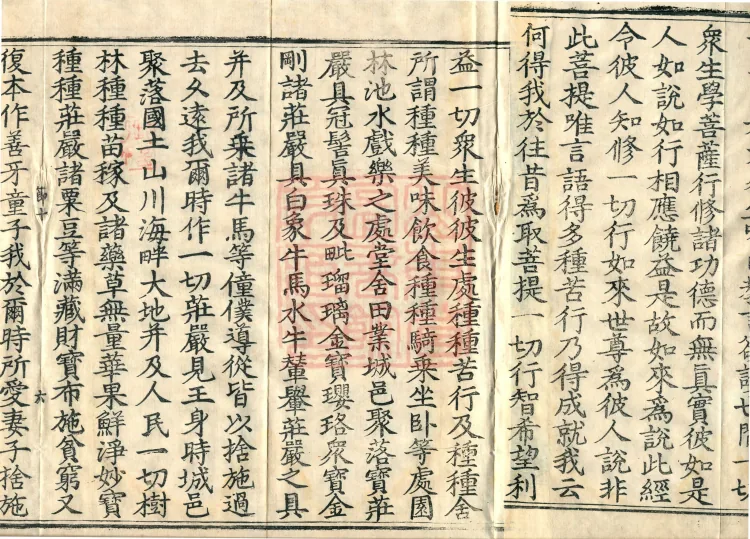 衆生學菩薩行修諸功德而無眞實彼如是
人如說如行相應饒益是故如來爲說此經
令彼人知修一切行如來世尊爲彼人說非
此菩提唯言語得多種苦行乃得成就我云
何得我於往昔爲取菩提一切行智希望利
益一切衆生彼彼生處種種苦行及種種舍
所謂種種美味飮食種種騎乘坐臥等處園
林池水戲樂之處堂舍田業城邑聚落寶莊
嚴具冠髻眞珠及毗瑠璃金寶瓔珞衆寶金
剛諸莊嚴具白象牛馬水牛輦轝莊嚴之具
并及所乘諸牛馬等僮僕導從皆以捨施過
去久遠我爾時作一切莊嚴見王身時城邑
聚落國土山川海畔大地并及人民一切樹
林種種苗稼及諸藥草無量華果鮮淨妙寶
種種莊嚴諸粟豆等滿藏財寶布施貧窮又
六
復本作善牙童子我於爾時所愛妻子捨施